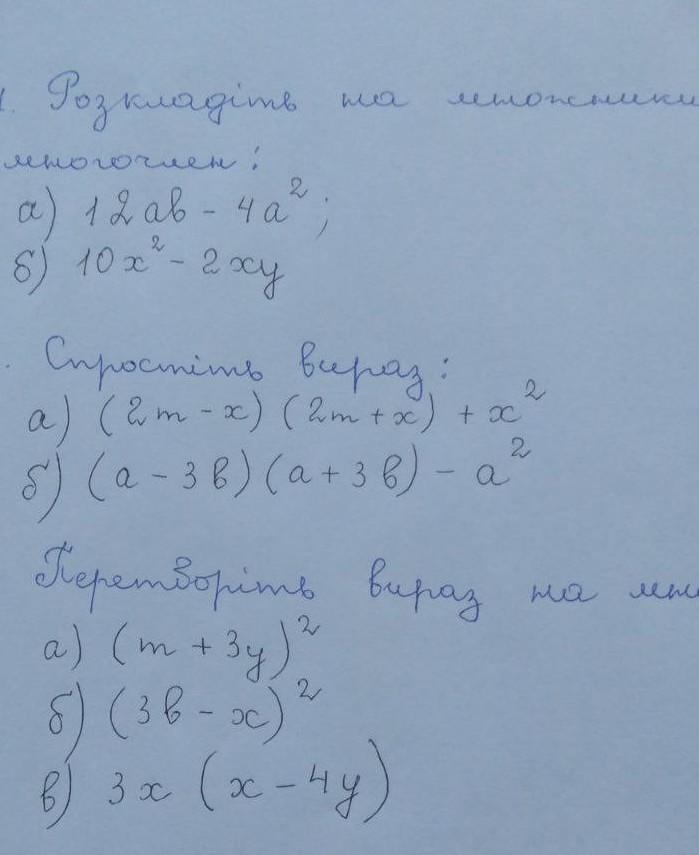 1. Розкладіть на множники
многочлен:
а) 12ав - 4а²;
б) 10х² - 2ху
. Спростіть вираз:
а) (2m - x) (2m + x) + x²
б) (а - 3в) (а + 3в) - а²
Перетворіть вираз на мн
а) (m + 3у)²
б) (3в - х)²
в) 3х (х - 4у)